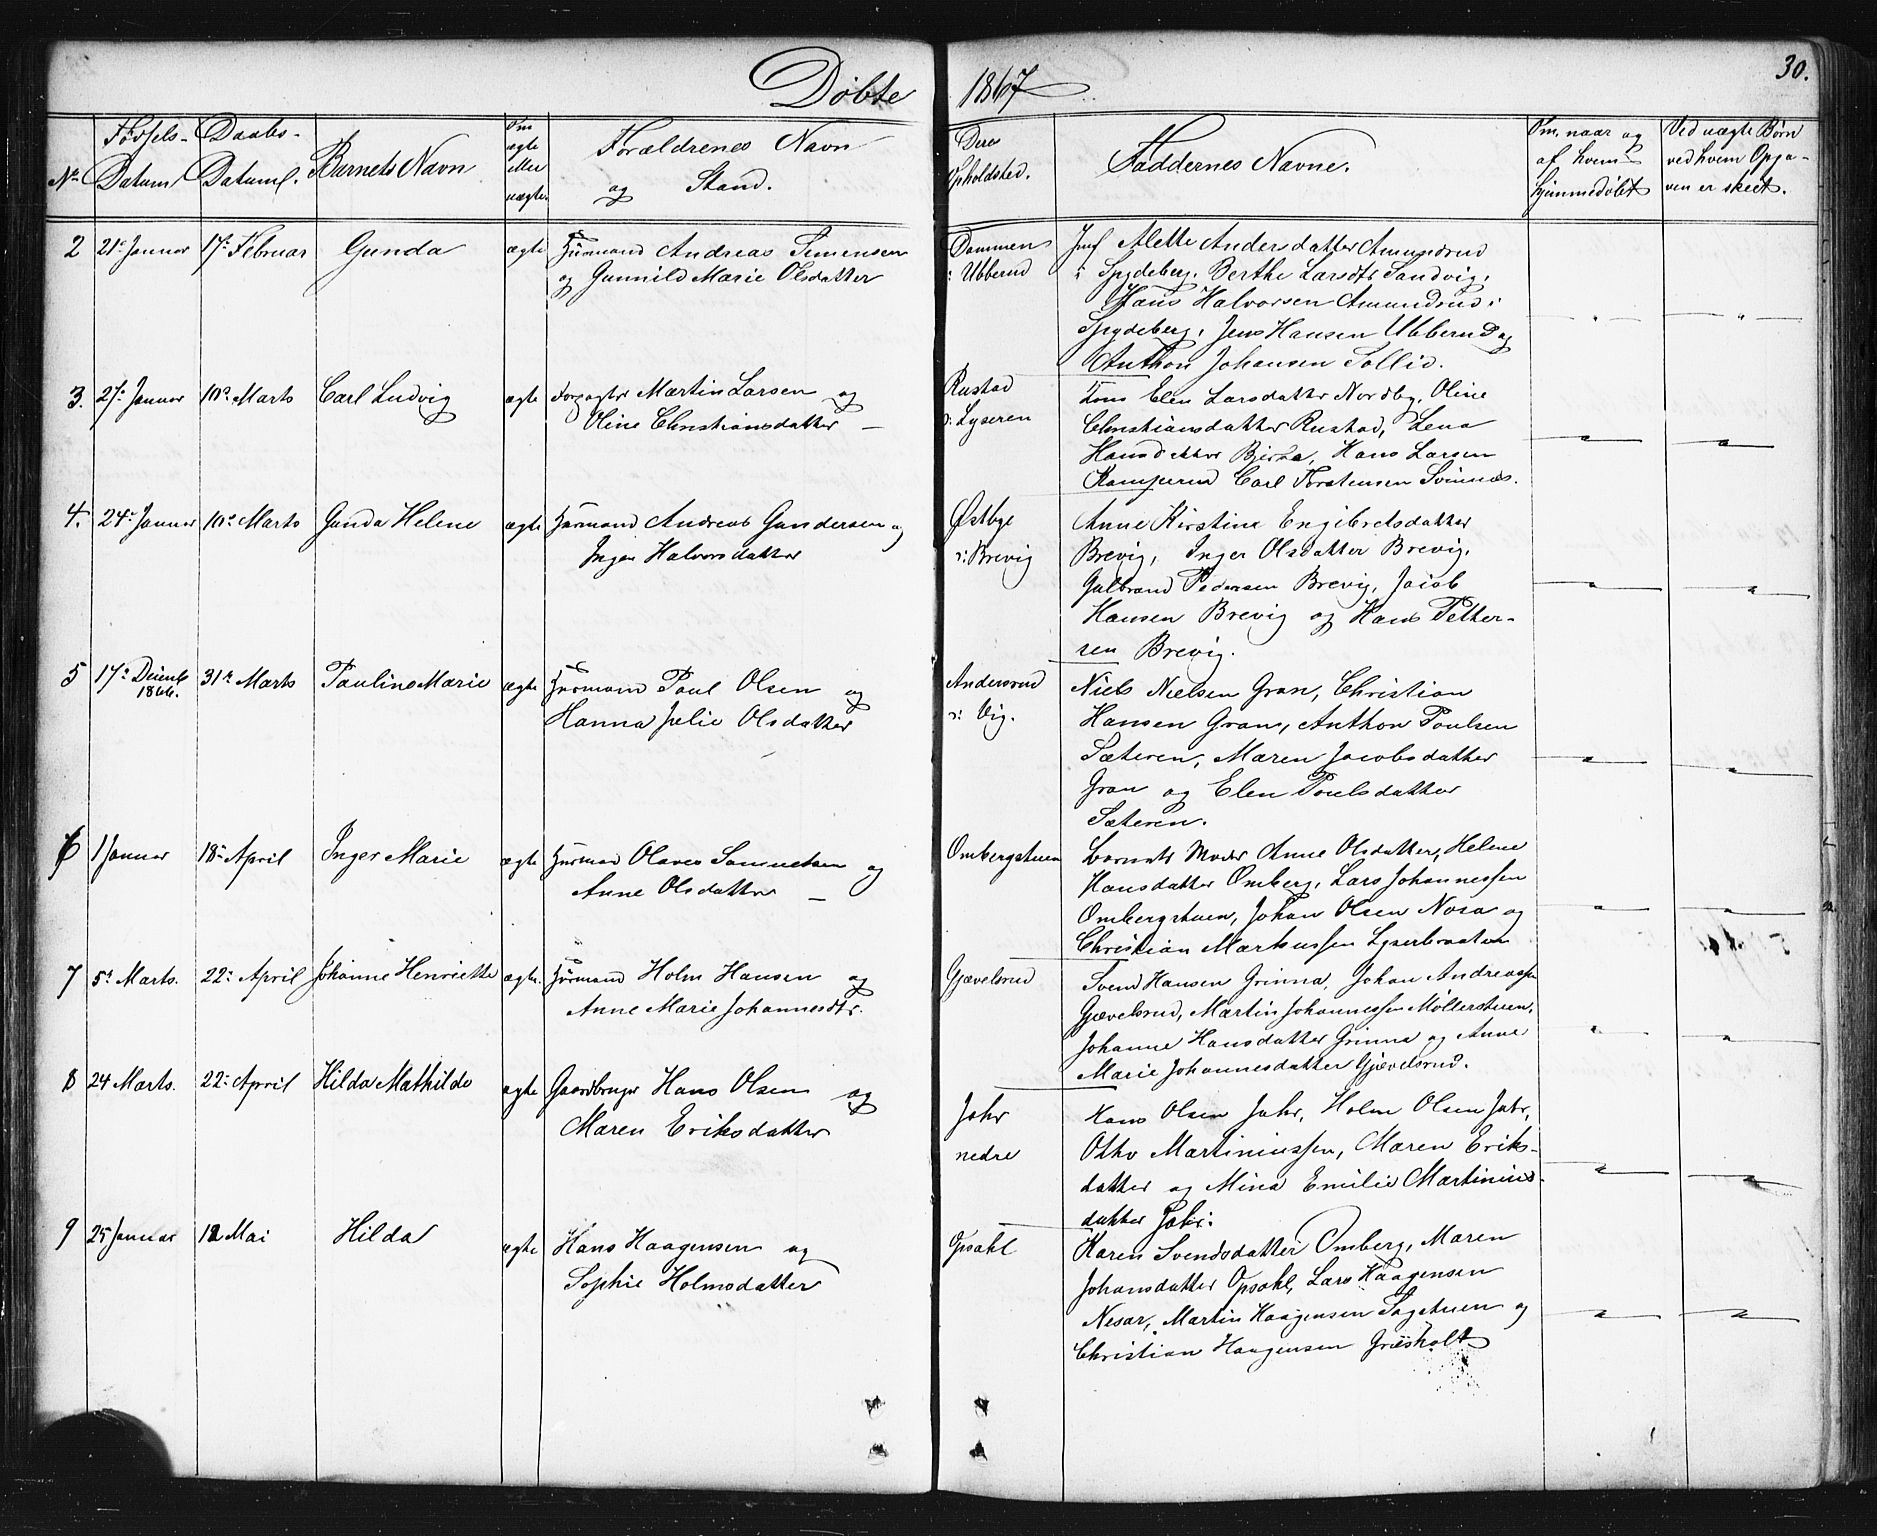 Døbte 1867
30.
No
Fødsels-
Datum
Daabs-
Datum.
Barnets Navn
Om
ægte
eller
uægte.
Forældrenes Navn
og Stand.
Deres
Opholdsted.
Faddernes Navne.
Om, naar og
af hvem
hjemmedøbt
Ved uægte Børn
ved hvem Opga-
ven er skeet.
2 21e Januar 17e Februar Gunda ægte Huusmand Andreas Simensen
og Gunnild Marie Olsdatter
Dammen
i Ubberud
Alette Andersdatter Amundrud
i Spydeberg. Berthe Larsdtr Sandvig,
Hans Halvorsen Amundrud i
Spydeberg, Jens Hansen Ubberud og
Anthon Johansen Sollid.
3. 27e Januar 10de Marts Carl Ludvig ægte Forpagter Martin Larsen og
Oline Christiansdatter —
Rustad
i Lyseren
Elen Larsdatter Nordby, Oline
Christiansdatter Rustad, Lena
Hansdatter Hans Larsen
Kamperud Carl Torstensen Svinnæs.
4. 24e Januar 10de Marts Gunda Helene ægte Huusmand Andreas Gundersen og
Inger Halvorsdatter
Østbye
i Brevig
Anne Kirstine Engibretsdatter
Brevig, Inger Olsdatter Brevig,
Gulbrand Pedersen Brevig, Jacob
Hansen Brevig og Hans Petter-
sen Brevig.
5 17e Decemb
1866.
31te Marts Pauline Marie ægte Huusmand Poul Olsen og
Hanna Julie Olsdatter
Andersrud
i Vig.
Niels Nielsen Gran, Christian
Hansen Gran, Anthon Poulsen
Sæteren, Maren Jacobsdatter
Gran og Elen Poulsdatter
Sæteren.
6 1 Januar 18de April Inger Marie ægte Huusmand Olaves Samuelsen og
Anne Olsdatter —
Ombergstuen
Barnets Moder Anne Olsdatter, Helene
Hansdatter Omberg, Lars Johannessen
Ombergstuen, Johan Olsen Nosa og
Christian Markussen Lyserbraaten
7 5te Marts. 22de April Johanne Henriette ægte. Huusmand Holm Hansen og
Anne Marie Johannesdtr.
Gjævelsrud
Svend Hansen Grinna, Johan Andreassen
Gjævelsrud, Martin Johannessen Møllerstuen,
Johanne Hansdatter Grinna og Anne
Marie Johannesdatter Gjævelsrud.
8 24 Marts. 22de April Hilda Mathilde ægte Gaardbruger Hans Olsen og
Maren Eriksdatter
Jahr
nedre
Hans Olsen Jahr, Holm Olsen Jahr,
Otto Martiniussen, Maren Eriks-
datter og Mina Emilie Martinius-
datter Jahr.
9 25 Januar 12 Mai Hilda ægte Hans Haagensen og
Sophie Holmsdatter
Opsahl
Karen Svendsdatter Omberg, Maren
Johansdatter Opsahl, Lars Haagensen
Nesar, Martin Haagensen Sagstuen og
Christian Haagensen Griisholt